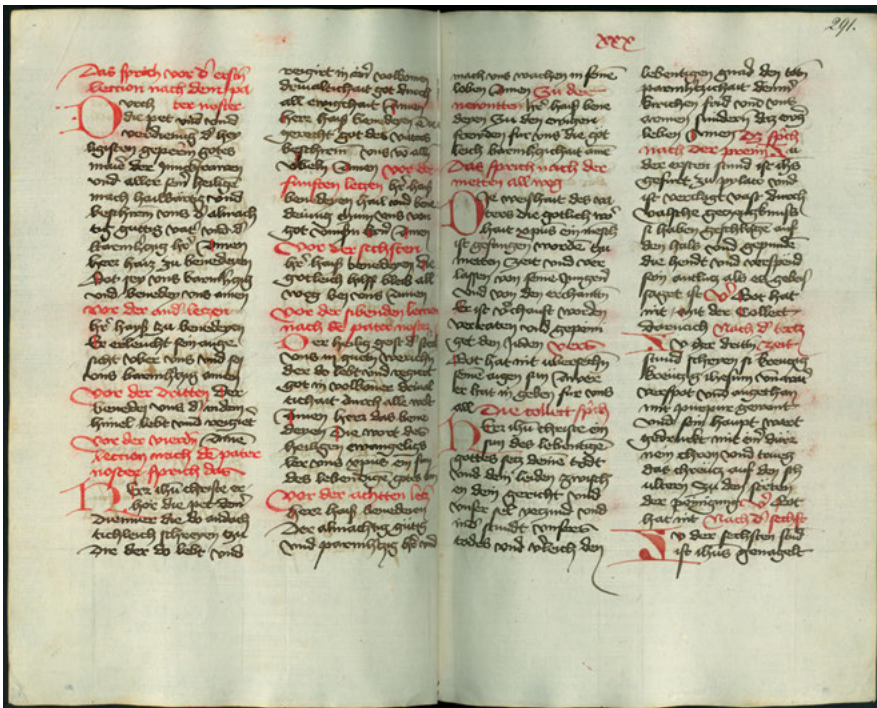 Das sprich vor d' ersten
lection nach dem pa
ter noster
Durch
die pet vnd vmd
verdienug d' hey
ligisten geperin gotes
marie der junckfrawen
vnd aller sein heilige
mach hailbartig vnd
beschirm vns d' almach
tig guttig vat' vnd d'
barmhtzig h'r Amen
herr haiz zu benedeyen
Got sey vns barmhtzig
vnd beneden vns amen
vor der and' letzen
h'r haiß zu benedeyen
Er erleucht sein ange
sicht vber vns vnd sey
vns barmhtzig amen
vor der dritten Der
beneden vns d' an dem
himel lebt vnd regiret
vor der vierdn Amen
Lection nach de pater
noster sprich das
Herr ihu christe er
hor die pet deiner
diener die do andach
tichleich schreyen zu
dir der do lebt vnd
regirt in ein' volkomen
driualtichait got durch
all ewigchait Amen
herr haiß benedeyen Der
gerecht got des vaters
beschirm vns vo alle
vbeln Amen vor der
funften letzen h'r haiß
benedeyen hail vnd bene
deiung chum vns von
got vnserm h'rn Amen
vor der sechsten
h'r haiß benedeyen die
gotleich hilff bleib all
weg bei vns Amen
vor der sibenden letzen
nach de pater noster
Der heilig geist d' sterck
vns in guten werchen
der do lebt vnd regirt
got in volkomer driual
tichait durch alle welt
Amen herr das bene
deyen Die wort des
heiligen ewangeligs
ler vns xpus ein sun
des lebentige gotes am
vor der achtten letz
herr haiß benedeyen
Der almachtig guttig
vnd parmhtzig h'r vnd
xxx
291.
mach vns wachen in seine
loben Amen Zu der
neuntten h'r haiß bene
deyen Zu den ewigen
freuden fur vns die got
leich barmhtzichait ame
Das sprich nach der
metten all weg
Die weishait des va
ters die gotlich war
hait xpus ein mesch
ist gefangen worden zu
metten zeit vnd ver
lassen von seine jungern
vnd von den erchantn
Er ist v'chauft worden
verratten vnd gepein
get den juden vers
Got hat nit vbersechn
seine aigen sun Awer
er hat in geben fur vns
all Die collect sprich
Herr ihu christe ein
sun des lebentigen
gottes setz deine todt
vnd dein leiden zwisch
en dem gericht vnd
vnser sel yetzund vnd
in d' stundt vnsers
todes vnd v'leich den
lebentigen gnad den toten
parmhtzichait deiner
kirichen frid vnd vns
armen sundern dz ewig
leben Amen dz sprich
nach der preim Zu
der ersten stund ist ihs
gefurt zu pylato vnd
ist verclagt vast durch
valsche gezeugknuss
si haben geschlage auf
den hals vnd gepunden
die hendt vnd verspeid
sein antlutz als er gebei
saget ist V' Got hat
nit mit der Collect
darnach Nach d' tertz
Zu der dritn zeit
stund schreien si kreutzig
kreutzig ihesum vnd wart
verspot vnd angethan
mit purpur gewant
vnd sein haupt wart
gedruckt mit ein' dure
nein chron vnd trueg
das chreutz auf den sch
ulteren zu den steten
der peinigung V' Got
hat nit Nach d' sechst
Zu der sechsten stund
ist ihus genagelt